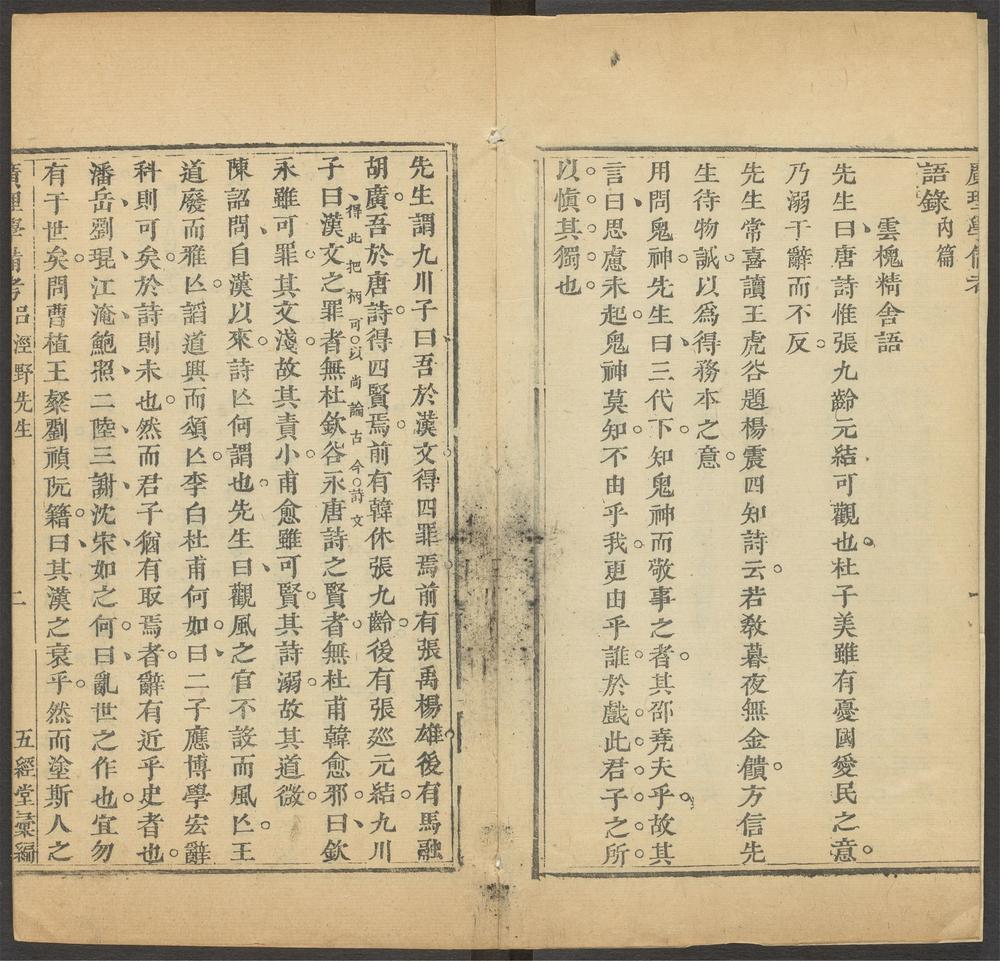 廣理學備考
語錄 內篇
雲槐精舍語
先生曰唐詩惟張九齡元結可觀也杜子美雖有憂國愛民之意
乃溺于辭而不反
先生常喜讀王虎谷題楊震四知詩云若敎暮夜無金饋方信先
生待物誠以爲得務本之意
用問鬼神先生曰三代下知鬼神而敬事之者其邵堯夫乎故其
言曰思慮未起鬼神莫知不由乎我更由乎誰於戲此君子之所
以愼其獨也
一
先生謂九川子曰吾於漢文得四罪焉前有張禹楊雄後有馬融
胡廣吾於唐詩得四賢焉前有韓休張九齡後有張廵元結九川
得此把柄可以尚論古今詩文
子曰漢文之罪者無杜欽谷永唐詩之賢者無杜甫韓愈邪曰欽
永雖可罪其文淺故其責小甫愈雖可賢其詩溺故其道微
陳詔問自漢以來詩亾何謂也先生曰觀風之官不設而風亾王
道廢而雅亾謟道興而頌亾李白杜甫何如曰二子應博學宏辭
科則可矣於詩則未也然而君子猶有取焉者辭有近乎史者也
潘岳劉琨江淹鮑照二陸三謝沈宋如之何曰亂世之作也宜勿
有于世矣問曹植王粲劉禎阮籍曰其漢之衰乎然而塗斯人之
廣理學備考 呂涇野先生 二 五經堂彙編